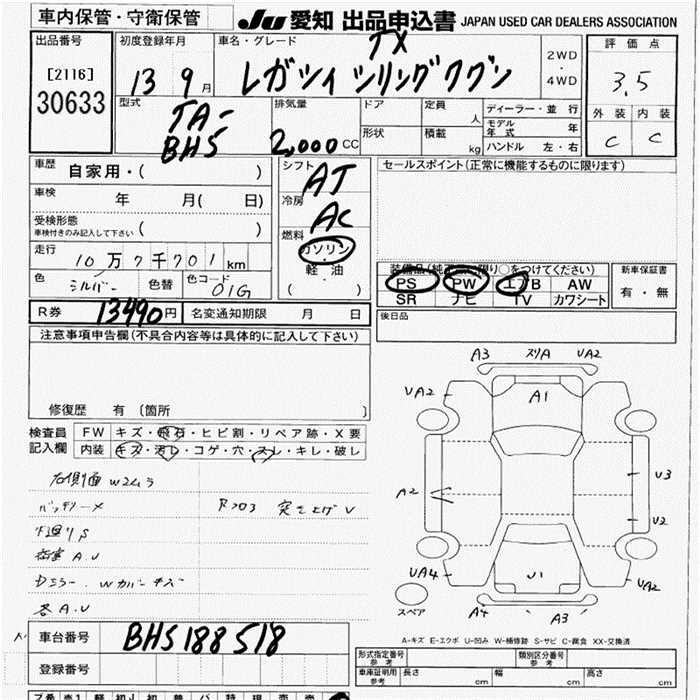 車内保管・守衛保管
JU 愛知 出品申込書 JAPAN USED CAR DEALERS ASSOCIATION
出品番号
[2116]
30633
初度登録年月
13 9月
車名・グレード
TX
2WD
・
4WD
評価点
3.5
型式
TA-
BH5
排気量
2,000cc
ドア
定員
人
形状
積載
kg
ディーラー・並行
モデル年式 年
ハンドル 左・右
外装 内装
C C
車歴 自家用・( )
車検 年 月( 日)
受検形態
車検付きのみ記入して下さい ( )
走行 10万7千701km
色 シルバー 色替 色コード 01G
シフト
AT
冷房
AC
燃料
ガソリン
・
軽油
( ・ )
セールスポイント(正常に機能するものに限ります)
装備品(純正品に限り○をつけてください)
PS PW エアB AW
SR ナビ TV カワシート
新車保証書
有・無
R券 13490円 名変通知期限 月 日
後日品
注意事項申告欄(不具合内容等は具体的に記入して下さい)
修復歴 有 〔箇所 〕
検査員
記入欄
FW キズ・飛石・ヒビ割・リペア跡・X要
内装 キズ・汚レ・コゲ・穴・スレ・キレ・破レ
右側面 W2ムラ
バッテリーメ
Rフロア 突き上げU
下廻りS
A.U
Dミラー. Wカバーキズ
各A.U
A3 スリA UA2
UA2
A1
A2
U3
U2
UA4
U1
UA2
スペア
A4 A3
A-キズ E-エクボ U-凹み W-補修跡 S-サビ C-腐食 XX-交換済
車台番号 BH5188518
登録番号
形式指定番号
参考
類別区分番号
参考
車庫証明用
参考
長さ cm 幅 cm 高さ cm